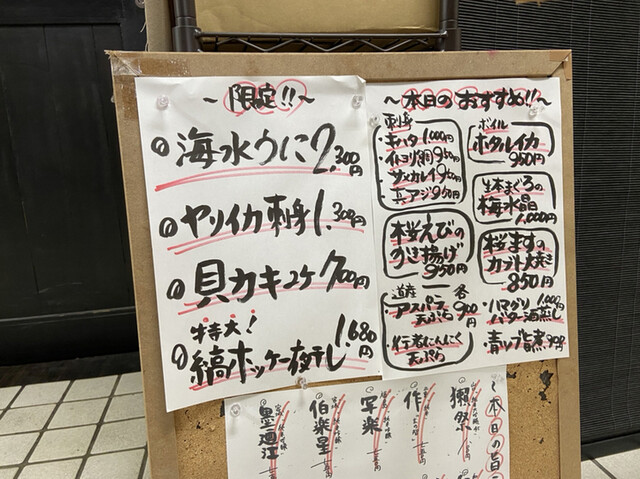 ～限定!!～
海水うに2,300円
ヤリイカ刺身1,300円
貝カキユケ700円
特大!
縞ホッケ一夜干し1,680円
～本日のおすすめ!!～
刺身
・キハタ1,000円
・イトヨリ鯛950円
・サメカレイ950円
・真アジ950円
桜えびの
かき揚げ
850円
道産
・アスパラ
天ぷら
各
900円
・行者にんにく
天ぷら
ボイル
ホタルイカ
950円
生本まぐろの
梅水晶
1,000円
桜ますの
カブト焼き
850円
・ハマグリ1,000円
バター酒蒸し
・青ツブ旨煮
～本日の旨
獺祭
作
写楽
伯楽星
墨廼江